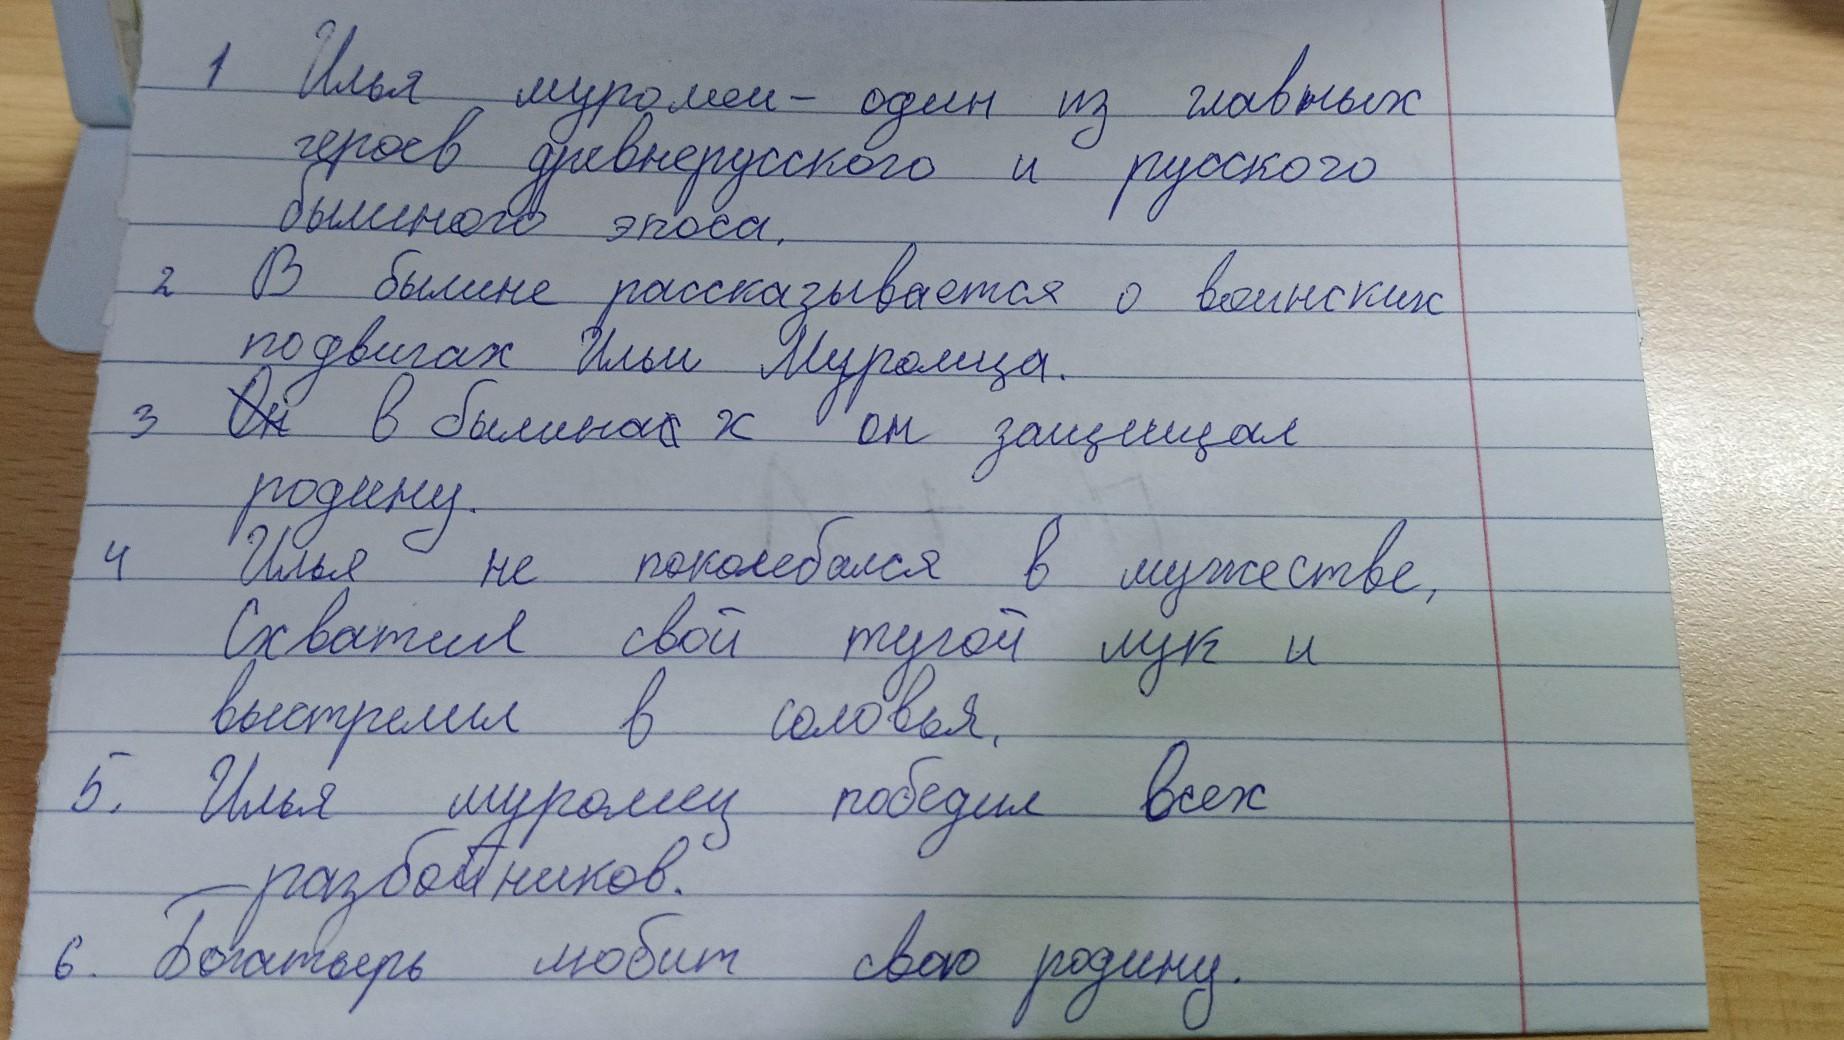 1 Илья муромец - один из главных
героев древнерусского и русского
былиного эпоса.
2 В былине рассказывается о воинских
подвигах Ильи Муромца.
3 в былинах он защищал
родину.
4 Илья не поколебался в мужестве,
Схватил свой тугой лук и
выстрелил в соловья.
5. Илья муромец победил всех
разбойников.
6. Богатырь любит свою родину.